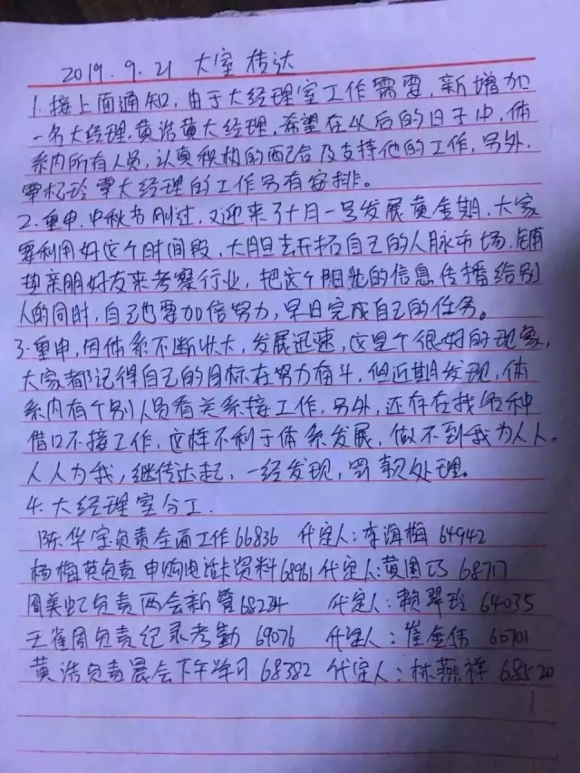 2019.9.21 大室传达
1.接上面通知,由于大经理室工作需要,新增加
一名大经理,黄浩黄大经理,希望在以后的日子中,体
系内所有人员,认真积极的配合及支持他的工作,另外,
覃松玲覃大经理的工作另有安排。
2.重申,中秋节刚过,又迎来了十月一号发展黄金期,大家
要利用好这个时间段,大胆去开拓自己的人脉市场,
亲朋好友来考察行业,把这个阳光的信息传播给别
人的同时,自己也要加倍努力,早日完成自己的任务。
3.重申,因体系不断壮大,发展迅速,这是个很好的现象,
大家都记得自己的目标在努力奋斗,但近期发现,体
系内有个别人员看关系接工作,另外,还存在找各种
借口不接工作,这样不利于体系发展,做不到我为人人,
人人为我,继传达起,一经发现,罚款处理。
4.大经理室分工.
陈华宇负责全面工作66836 代定人:李海梅 64942
杨梅英负责申购电话卡资料68961代定人:黄国巧 68717
周美虹负责两会新管68234 代定人:赖翠玲 64035
王雀周负责纪录考勤 69076 代定人:崔金伟 60701
黄浩负责晨会下午学习 68382 代定人:林燕祥 68520